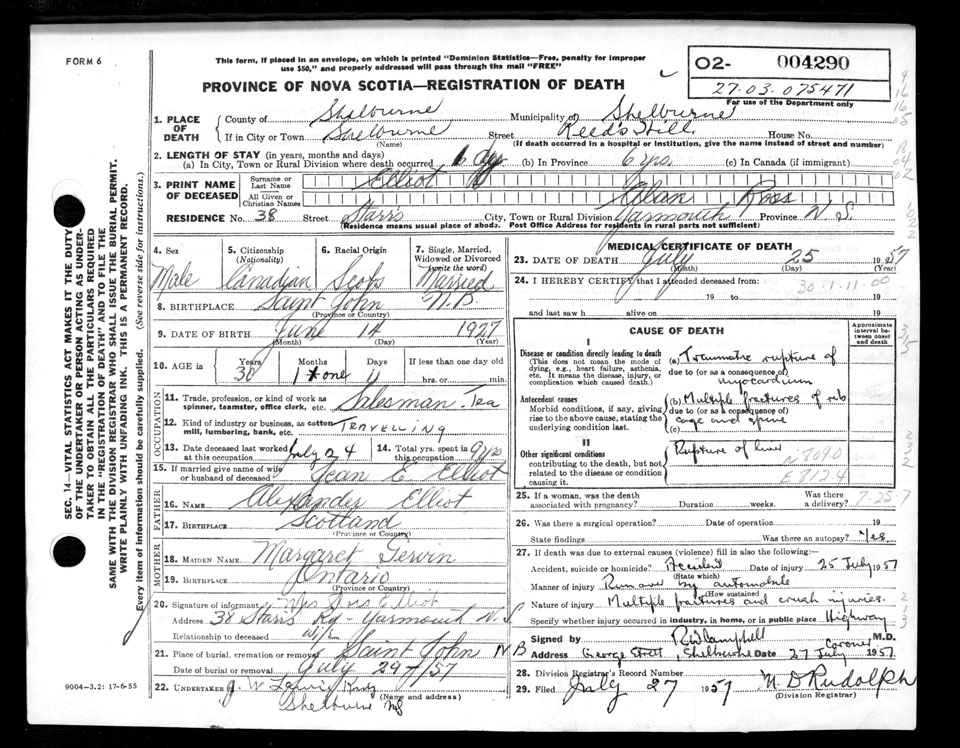 FORM 6
This form, if placed in an envelope, on which is printed "Dominion Statistics—Free, penalty for improper
use $50," and properly addressed will pass through the mail "FREE"
PROVINCE OF NOVA SCOTIA—REGISTRATION OF DEATH
02- 004290
27-03-075471
For use of the Department only
1. PLACE OF DEATH
County of Shelburne Municipality of Shelburne
If in City or Town Shelburne Street Reed's Hill House No.
(Name) (If death occurred in a hospital or institution, give the name instead of street and number)
2. LENGTH OF STAY (in years, months and days)
(a) In City, Town or Rural Division where death occurred 1 day (b) In Province 6 yrs. (c) In Canada (if immigrant)
3. PRINT NAME OF DECEASED
Surname or Last Name Elliot
All Given or Christian Names Alan Ross
RESIDENCE No. 38 Street Starrs City, Town or Rural Division Yarmouth Province N.S.
(Residence means usual place of abode. Post Office Address for residents in rural parts not sufficient)
4. Sex Male
5. Citizenship (Nationality) Canadian
6. Racial Origin Scots
7. Single, Married, Widowed or Divorced (write the word) Married
8. BIRTHPLACE Saint John N.B.
(Province or Country)
9. DATE OF BIRTH June 14 1927
(Month) (Day) (Year)
10. AGE in Years 30 Months 1 one Days 11 If less than one day hrs. or min.
OCCUPATION
11. Trade, profession, or kind of work as spinner, teamster, office clerk, etc. Salesman - Tea
12. Kind of industry or business, as cotton mill, lumbering, bank, etc. TRAVELLING
13. Date deceased last worked at this occupation July 24
14. Total yrs. spent in this occupation 9 yrs
15. If married give name of wife or husband of deceased Jean E. Elliot
FATHER
16. NAME Alexander Elliot
17. BIRTHPLACE Scotland
(Province or Country)
MOTHER
18. MAIDEN NAME Margaret
19. BIRTHPLACE Ontario
(Province or Country)
20. Signature of informant Mrs Elliot
Address 38 Starrs Rd - Yarmouth N.S
Relationship to deceased wife
21. Place of burial, cremation or removal Saint John NB
Date of burial or removal July 29 /57
22. UNDERTAKER
Shelburne NS
9004-3.2: 17-6-55
MEDICAL CERTIFICATE OF DEATH
23. DATE OF DEATH July 25 1957
(Month) (Day) (Year)
24. I HEREBY CERTIFY that I attended deceased from:
30-1-11-00
19 to 19
and last saw h alive on 19
CAUSE OF DEATH
Approximate interval between onset and death
I
Disease or condition directly leading to death
(This does not mean the mode of dying, e.g., heart failure, asthenia, etc. It means the disease, injury, or complication which caused death.)
(a) Traumatic rupture of
due to (or as a consequence of)
myocardium
Antecedent causes
Morbid conditions, if any, giving rise to the above cause, stating the underlying condition last.
(b) Multiple fractures of rib
due to (or as a consequence of)
cage and spine
(c)
II
Other significant conditions
contributing to the death, but not related to the disease or condition causing it.
Rupture of liver
N8090
E8124
25. If a woman, was the death associated with pregnancy? Duration weeks. Was there a delivery?
7-25-7
26. Was there a surgical operation? Date of operation 19
State findings Was there an autopsy? Yes
27. If death was due to external causes (violence) fill in also the following:
Accident, suicide or homicide? Accident Date of injury 25 July 1957
(State which)
Manner of injury Run over by automobile
(How sustained)
Nature of injury Multiple fractures and crush injuries.
Specify whether injury occurred in industry, in home, or in public place Highway
Signed by RW Campbell M.D.
Coroner
Address George Street, Shelburne Date 27 July 1957
28. Division Registrar's Record Number
29. Filed July 27 1957 N D Rudolph
(Division Registrar)
SEC. 14—VITAL STATISTICS ACT MAKES IT THE DUTY
OF THE UNDERTAKER OR PERSON ACTING AS UNDER-
TAKER TO OBTAIN ALL THE PARTICULARS REQUIRED
IN THE "REGISTRATION OF DEATH" AND TO FILE THE
SAME WITH THE DIVISION REGISTRAR WHO SHALL ISSUE THE BURIAL PERMIT.
WRITE PLAINLY WITH UNFADING INK. THIS IS A PERMANENT RECORD.
Every item of information should be carefully supplied. (See reverse side for instructions.)